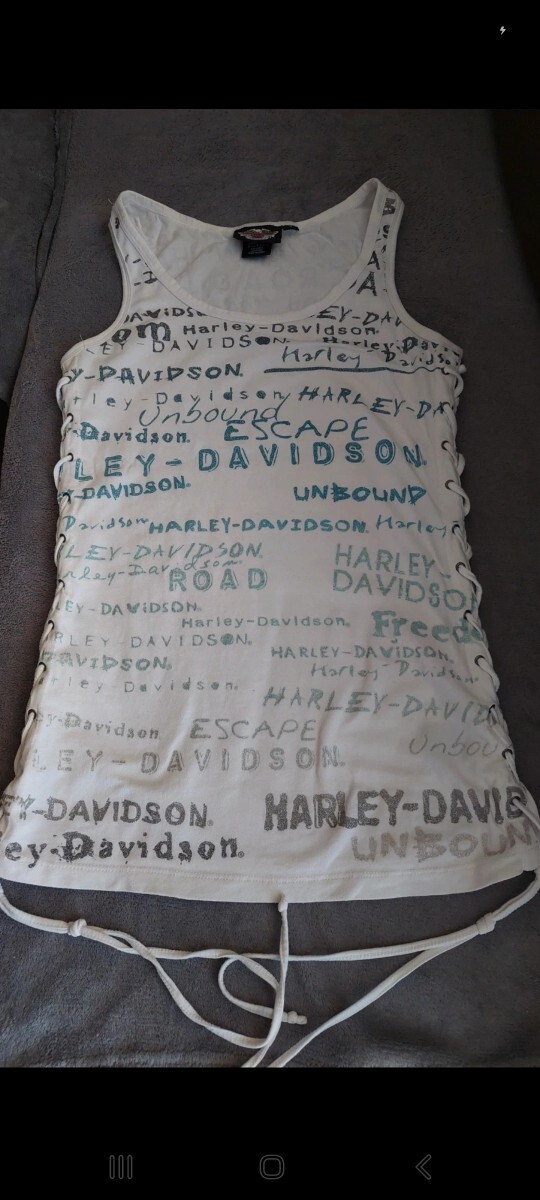 AViDSO EY-DAV
om Harley-Davidson
EY-DAVIDSON Harley-Davids
Harley-Davidso
Y-DAVIDSON.
rley-Davidson HARLEY-DA
Unbound
-Davidson. ESCAPE
LEY-DAVIDSON.
Y-DAVIDSON. UNBOUND
Davidson HARLEY-DAVIDSON. Harley
LEY-DAVIDSON. HARLEY-
rley-Davidson DAVIDSO
ROAD
EY-DAViDSON.
Harley-Davidson. Freed
RLEY-DAVIDSON. HARLEY-DAViDSON.
AVIDSON. Harley-Davidson
rley Davidson. HARLEY-DAVID
ey-Davidson ESCAPE Unbou
LEY-DAVIDSON.
EY-DAVIDSON. HARLEY-DAVID
ey-Davidson. UNBOUN